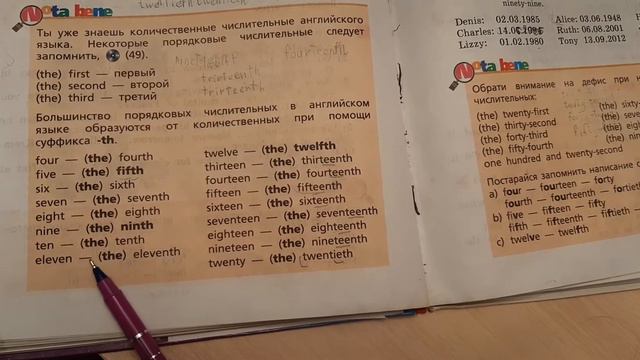 Nota bene
Ты уже знаешь количественные числительные английского
языка. Некоторые порядковые числительные следует
запомнить, (49).
(the) first — первый
(the) second — второй
(the) third — третий
Большинство порядковых числительных в английском
языке образуются от количественных при помощи
суффикса -th.
four — (the) fourth
five — (the) fifth
six — (the) sixth
seven — (the) seventh
eight — (the) eighth
nine — (the) ninth
ten — (the) tenth
eleven — (the) eleventh
twelve — (the) twelfth
thirteen — (the) thirteenth
fourteen — (the) fourteenth
fifteen — (the) fifteenth
sixteen — (the) sixteenth
seventeen — (the) seventeenth
eighteen — (the) eighteenth
nineteen — (the) nineteenth
twenty — (the) twentieth
ninety-nine.
Denis: 02.03.1985 Alice: 03.06.1948
Charles: Ruth: 06.08.2001
Lizzy: 01.02.1980 Tony 13.09.2012
Nota bene
Обрати внимание на дефис при
числительных:
(the) twenty-first
(the) thirty-second
(the) forty-third
(the) fifty-fourth
one hundred and twenty-second
(the)
(the)
(the)
(the)
Постарайся запомнить написание
a) four — fourteen — forty
fourth — fourteenth —
b) five — fifteen — fifty
fifth — fifteenth —
c) twelve — twelfth